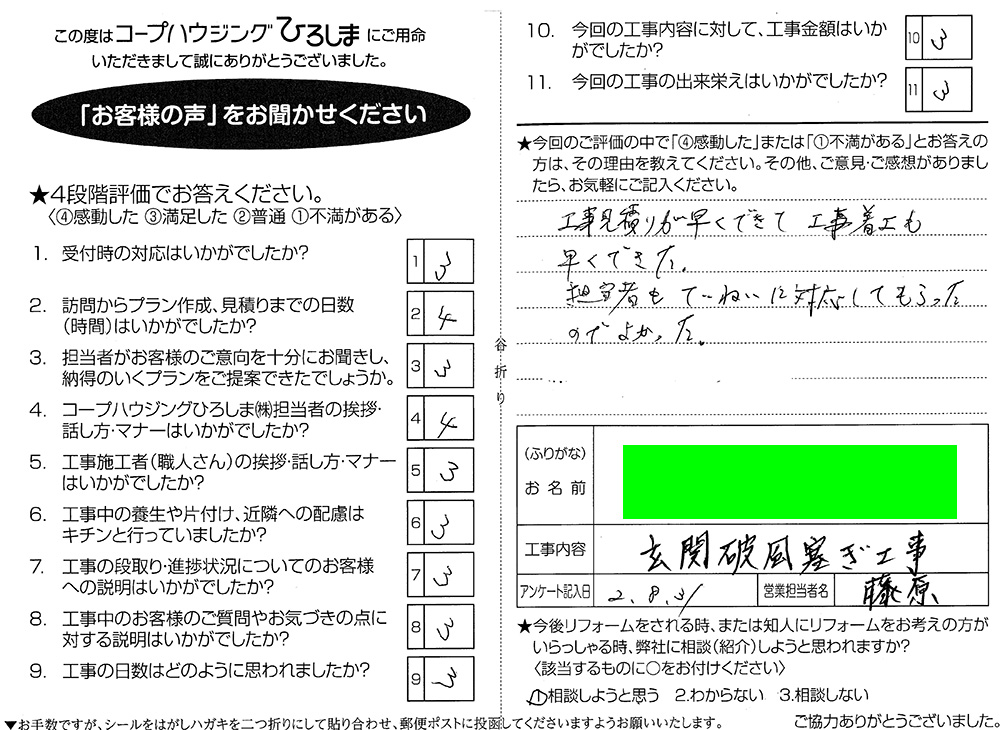 この度はコープハウジングひろしまにご用命
いただきまして誠にありがとうございました。
「お客様の声」をお聞かせください
★4段階評価でお答えください。
〈④感動した ③満足した ②普通 ①不満がある〉
1. 受付時の対応はいかがでしたか?
1 3
2. 訪問からプラン作成、見積りまでの日数
(時間)はいかがでしたか?
2 4
3. 担当者がお客様のご意向を十分にお聞きし、
納得のいくプランをご提案できたでしょうか。
3 3
4. コープハウジングひろしま㈱担当者の挨拶・
話し方・マナーはいかがでしたか?
4 4
5. 工事施工者(職人さん)の挨拶・話し方・マナー
はいかがでしたか?
5 3
6. 工事中の養生や片付け、近隣への配慮は
キチンと行っていましたか?
6 3
7. 工事の段取り・進捗状況についてのお客様
への説明はいかがでしたか?
7 3
8. 工事中のお客様のご質問やお気づきの点に
対する説明はいかがでしたか?
8 3
9. 工事の日数はどのように思われましたか?
9 3
▼お手数ですが、シールをはがしハガキを二つ折りにして貼り合わせ、郵便ポストに投函してくださいますようお願いいたします。
谷折り
10. 今回の工事内容に対して、工事金額はいか
がでしたか?
10 3
11. 今回の工事の出来栄えはいかがでしたか?
11 3
★今回のご評価の中で「④感動した」または「①不満がある」とお答えの
方は、その理由を教えてください。その他、ご意見・ご感想がありまし
たら、お気軽にご記入ください。
工事見積りが早くできて 工事着工も
早くできた。
担当者も てーねいに対応してもらった
のでよかった。
(ふりがな)
お名前
工事内容 玄関破風塞ぎ工事
アンケート記入日 2.8.31 営業担当者名 藤原
★今後リフォームをされる時、または知人にリフォームをお考えの方が
いらっしゃる時、弊社に相談(紹介)しようと思われますか?
〈該当するものに○をお付けください〉
1.相談しようと思う 2.わからない 3.相談しない
ご協力ありがとうございました。